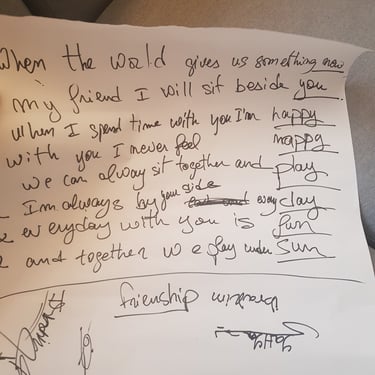 When the world gives us something new
my friend I will sit beside you.
When I spend time with you I'm happy
with you I never feel nappy
we can always sit together and play
I'm always by your side every day
everyday with you is fun
and together we play under sun
frienship ibrahim